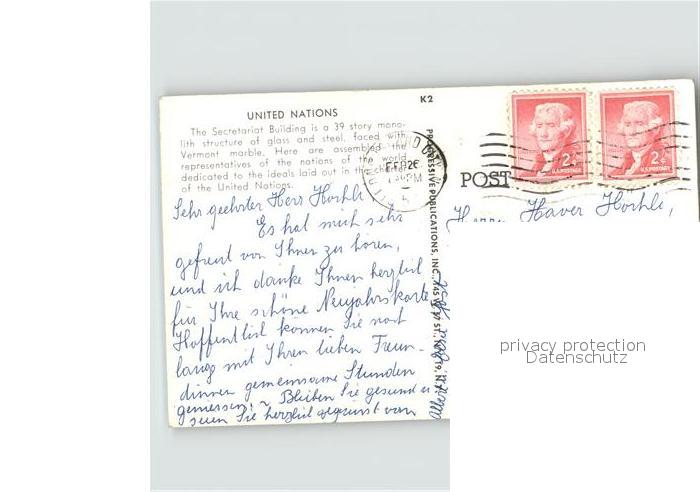 K2
UNITED NATIONS
The Secretariat Building is a 39 story mono-
lith structure of glass and steel, faced with
Vermont marble. Here are assembled the
representatives of the nations of the world
dedicated to the ideals laid out in the charter
of the United Nations.
FEB 26
PM
2¢
U.S.POSTAGE
2¢
U.S.POSTAGE
POST
PROGRESSIVE PUBLICATIONS, INC.
Sehr geehrter Herr Hoshli
Es hat mich sehr
gefreut von Ihnen zu hören,
und ich danke Ihnen herzlich
für Ihre schöne Neujahrskarte
Hoffentlich können Sie noch
lange mit Ihren lieben Freun-
dinnen gemeinsame Stunden
geniessen. Bleiben Sie gesund u
seien Sie herzlich gegrüsst von
Albert
Haver Hoshli,
privacy protection
Datenschutz